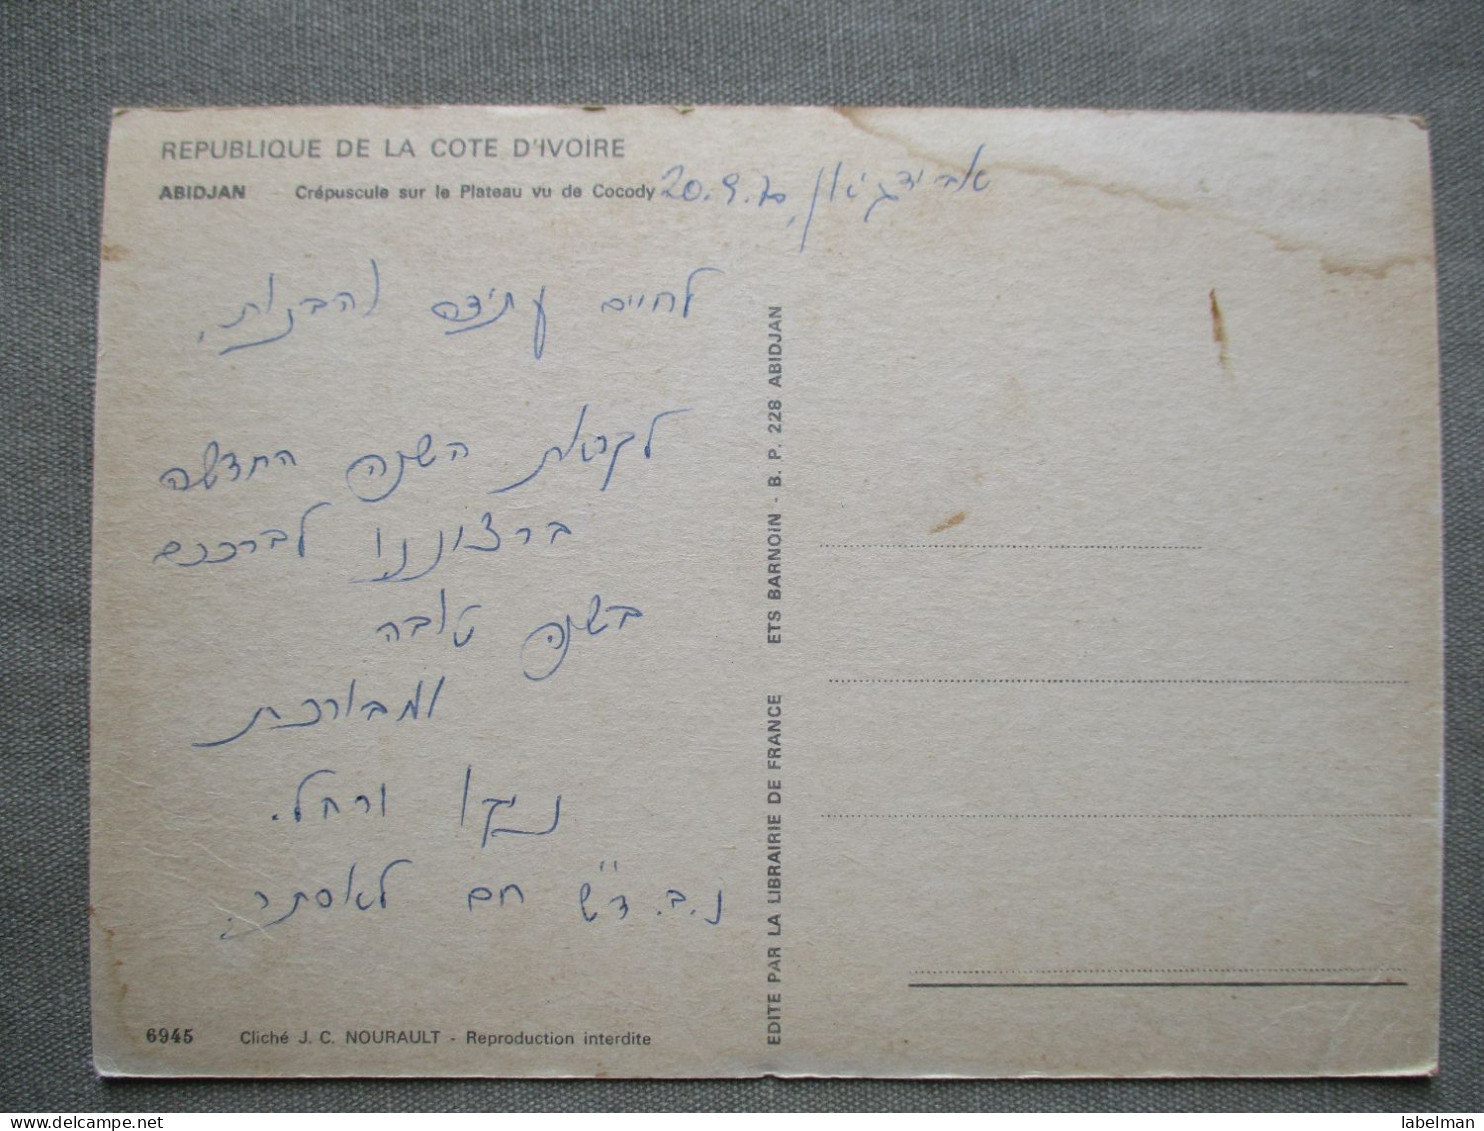 REPUBLIQUE DE LA COTE D'IVOIRE
ABIDJAN Crépuscule sur le Plateau vu de Cocody
אבידג'אן, 20.9.70
לחיים עתידם והבנות,
לקראת השנה החדשה
ברצוננו לברככם
בשנה טובה
ומבורכת
ניקו ורחל.
נ.ב. ד"ש חם לאסתר.
EDITE PAR LA LIBRAIRIE DE FRANCE ETS BARNOIN - B. P. 228 ABIDJAN
6945 Cliché J. C. NOURAULT - Reproduction interdite
labelman